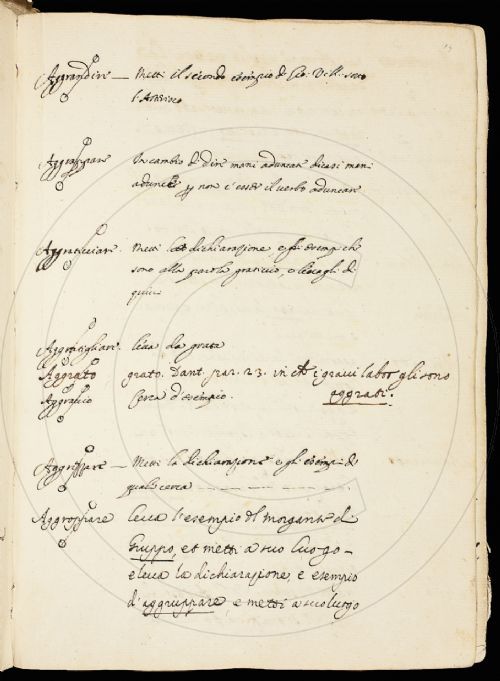 Aggrandire — Metti il secondo esempio di Gio. Vill. sotto
Aggrappare In cambio di dire mani aduncate dicasi mani
adunche non c'essere il verbo aduncare
Aggraticciare. Metti la dichiarazione, e gli esempi che
sono alla parola graticcio, e levagli di
quivi
Aggratigliare. leva da grata
Aggrato grato. Dant. par. 23. in che i gravi labor gli sono
aggrati.
Aggravio cerca d'esempio.
Aggreppare — Metti la dichiarazione e gli esempi di
quali cerca
Aggroppare Leva l'esempio del Morgante di
Gruppo, et metti a suo luogo —
e leva la dichiarazione, e esempio
d'aggruppare, e metti a suo luogo